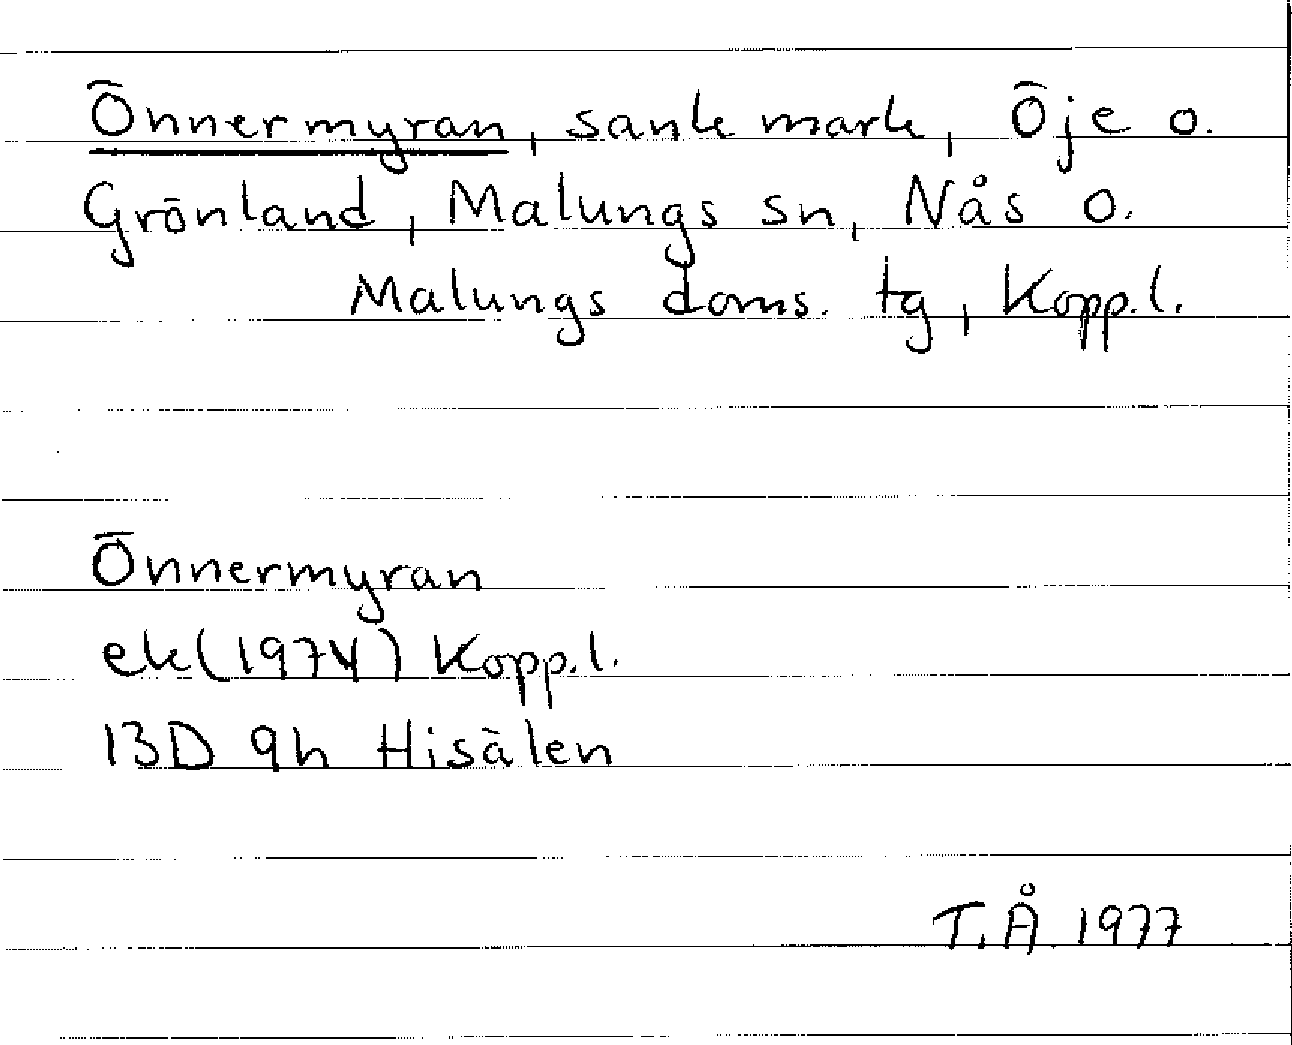 Önnermyran, sank mark, Öje o.
Grönland, Malungs sn, Nås o.
Malungs doms. tg, Kopp.l.
Önnermyran
ek(1974) Kopp.l.
13D 9h Hisälen
T.Å. 1977